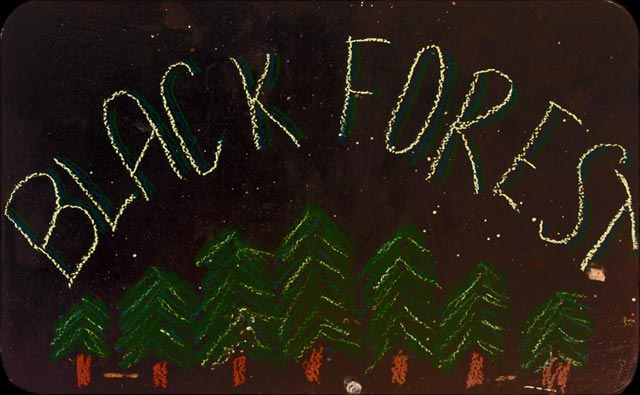 BLACK FOREST